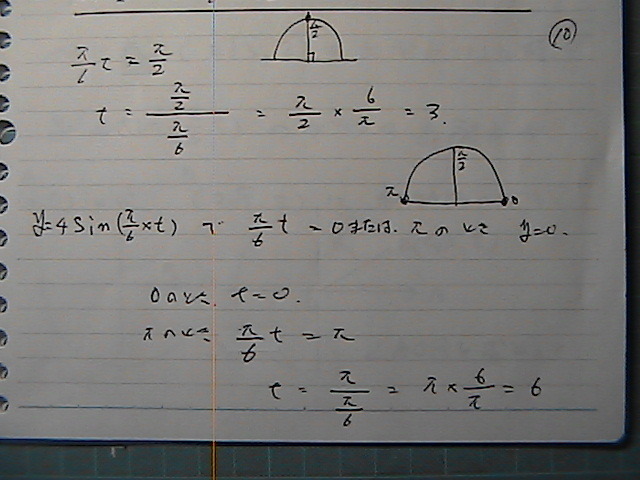 ⑩
π/2
π/6 t = π/2
t = (π/2)/(π/6) = π/2 × 6/π = 3.
π π/2 0
y=4 sin(π/6 × t) で π/6 t = 0 または. π のとき y=0.
0のとき t=0.
πのとき π/6 t = π
t = π/(π/6) = π × 6/π = 6